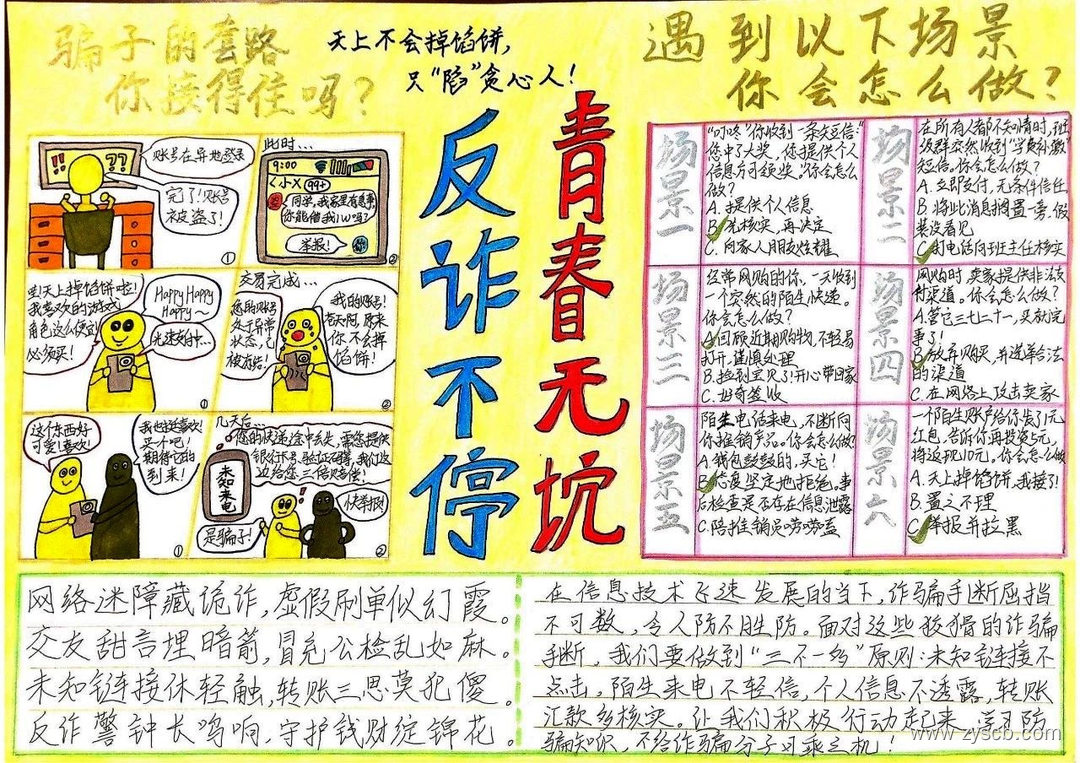 骗子的套路
你接得住吗？
天上不会掉馅饼，
只“陷”贪心人！
遇到以下场景
你会怎么做？
青春无坑
反诈不停
!!
??
账号在异地登录
完了！账号
被盗了！
①
此时…
9:00
<小X 99+
同学，我家里有急事
你能借我1W吗？
举报！
你
②
Happy Happy
Happy～
必须买！
①
交易完成…
我的账号！
苍天啊，原来
你不会掉
馅饼！
②
这个东西好
可爱！喜欢！
我也挺喜欢！
买个吧！
期待它的
到来！
①
几天后…
您的快递途中丢失，需您提供
银行卡号、验证码等，我们这
边给您三倍赔偿！
未知来电
是骗子！
快举报！
②
场景一
“叮咚”你收到一条短信：“
您中了大奖，您提供个人
信息方可领奖。”你会怎么
做？
A. 提供个人信息
B. 先核实，再决定
C. 向家人朋友炫耀
场景二
在所有人都不知情时，班
级群突然收到“学费补缴”
短信。你会怎么做？
A. 立即支付，无条件信任
B. 将此消息搁置一旁，假
装没看见
C. 打电话向班主任核实
场景三
经常网购的你，一天收到
一个突然的陌生快递。
你会怎么做？
A. 回顾近期购物，不轻易
打开，谨慎处理
B. 捡到宝贝了！开心带回家
C. 好奇签收
场景四
网购时，卖家提供非法支
付渠道。你会怎么做？
A. 管它三七二十一，买就完
事了！
B. 放弃购买，并选择合法
的渠道
C. 在网络上攻击卖家
场景五
陌生电话来电，不断向
你推销产品。你会怎么做？
A. 钱包鼓鼓的，买它！
B. 态度坚定地拒绝。事
后检查是否存在信息泄露
C. 陪推销员唠唠嗑
场景六
一个陌生账户给你发了1元
红包，告诉你再投资5元，
将返现10元，你会怎么做
A. 天上掉馅饼，我接了！
B. 置之不理
C. 举报并拉黑
网络迷障藏诡诈，虚假刷单似幻霞。
交友甜言埋暗箭，冒充公检乱如麻。
未知链接休轻触，转账三思莫犯傻。
反诈警钟长鸣响，守护钱财绽锦花。
在信息技术飞速发展的当下，诈骗手断层挡
不可数，令人防不胜防。面对这些狡猾的诈骗
手断，我们要做到“三不一多”原则：未知链接不
点击，陌生来电不轻信，个人信息不透露，转账
汇款多核实。让我们积极行动起来，学习防
骗知识，不给诈骗分子可乘之机！
www.zyscb.com